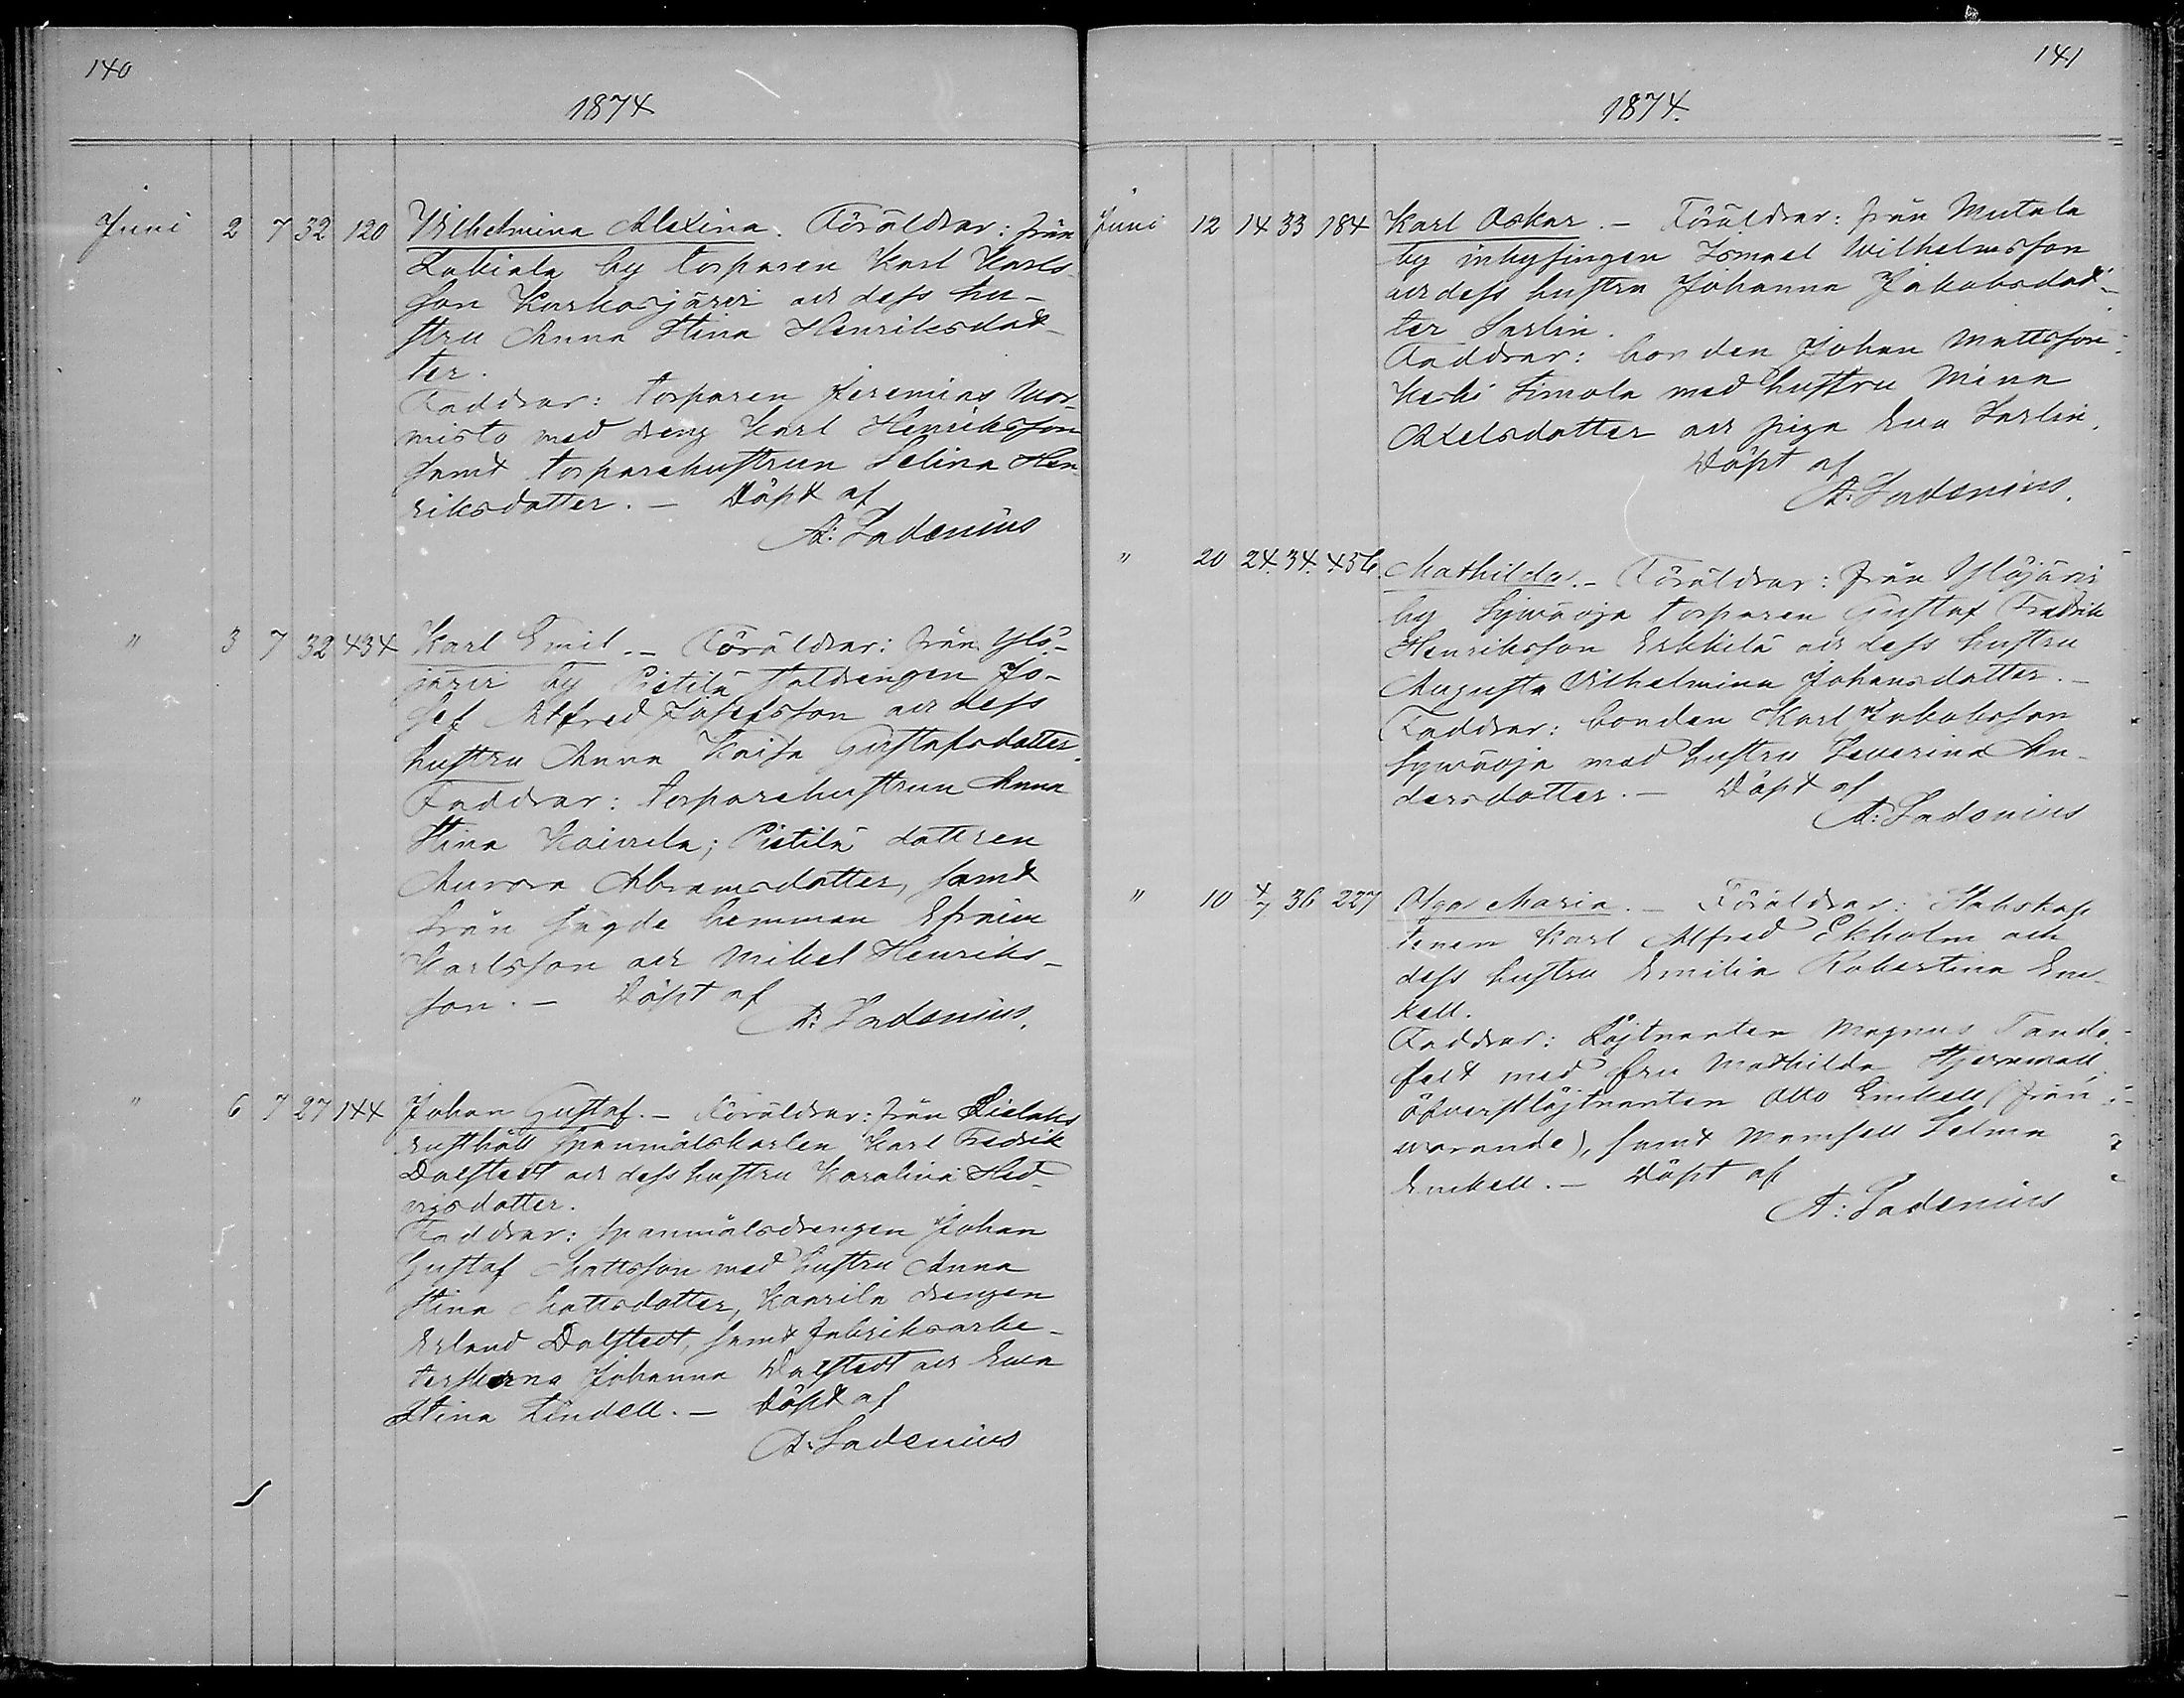 140
1874
Juni 2 7 32 120 Wilhelmina Alexina. Föräldrar: från
Lakiala by torparen Karl Karls-
son Karhasjärvi och dess hu-
stru Anna Stina Henriksdot-
ter.
Faddrar: torparen Jeremias Mor-
misto med dreng Karl Henriksson
samt torparehustrun Selina Hen-
riksdotter. – Döpt af
A: Ladenius
" 3 7 32 434 Karl Emil. – Föräldrar: från Ylö-
järvi by Pietilä staldrengen Jo-
sef Alfred Josefsson och dess
hustru Anna Kaisa Gustafsdotter.
Faddrar: torparehustrun Anna
Stina Koivula; Pietilä dottren
Aurora Abramsdotter, samt
från sagde hemman Efraim
Karlsson och Mikel Henriks-
son. – Döpt af
A: Ladenius.
" 6 7 27 144 Johan Gustaf. – Föräldrar: från Lielaks
rusthåll spanmålskarlen Karl Fredrik
Dalstedt och dess hustru Karolina Hed-
vigsdotter.
Faddrar: spanmålsdrengen Johan
Gustaf Mattsson med hustru Anna
Stina Mattsdotter, Kaarila drengen
Erland Dalstedt, samt fabriksarbe-
terskorna Johanna Dalstedt och Ewa
Stina Lindell. – Döpt af
A: Ladenius
141
1874.
Juni 12 14 33 184 Karl Oskar. – Föräldrar: från Mutala
by inhysingen Ismael Wilhelmsson
och dess hustru Johanna Jakobsdot-
ter Sarlin.
Faddrar: bonden Johan Mattsson
Keski Simola med hustru Mina
Axelsdotter och piga Eva Sarlin.
Döpt af
A: Ladenius.
" 20 24. 34. 456. Mathilda. – Föräldrar: från Ylöjärvi
by Sywäoja torparen Gustaf Fredrik
Henriksson Erkkilä och dess hustru
Augusta Vilhelmina Johansdotter. –
Faddrar: bonden Karl Jakobsson
Sywäoja med hustru Severina An-
dersdotter. – Döpt af
A: Ladenius
" 10 4/7 36 227 Olga Maria. – Föräldrar: Stabskap-
tenen Karl Alfred Ekholm och
dess hustru Emilia Robertina En-
kell.
Faddrar: Löjtnanten Magnus Tande-
felt med fru Mathilda Stjernvall,
öfverstlöjtnanten Otto Enkell (från-
warande), samt Mamsell Selma
Enkell. – Döpt af
A: Ladenius